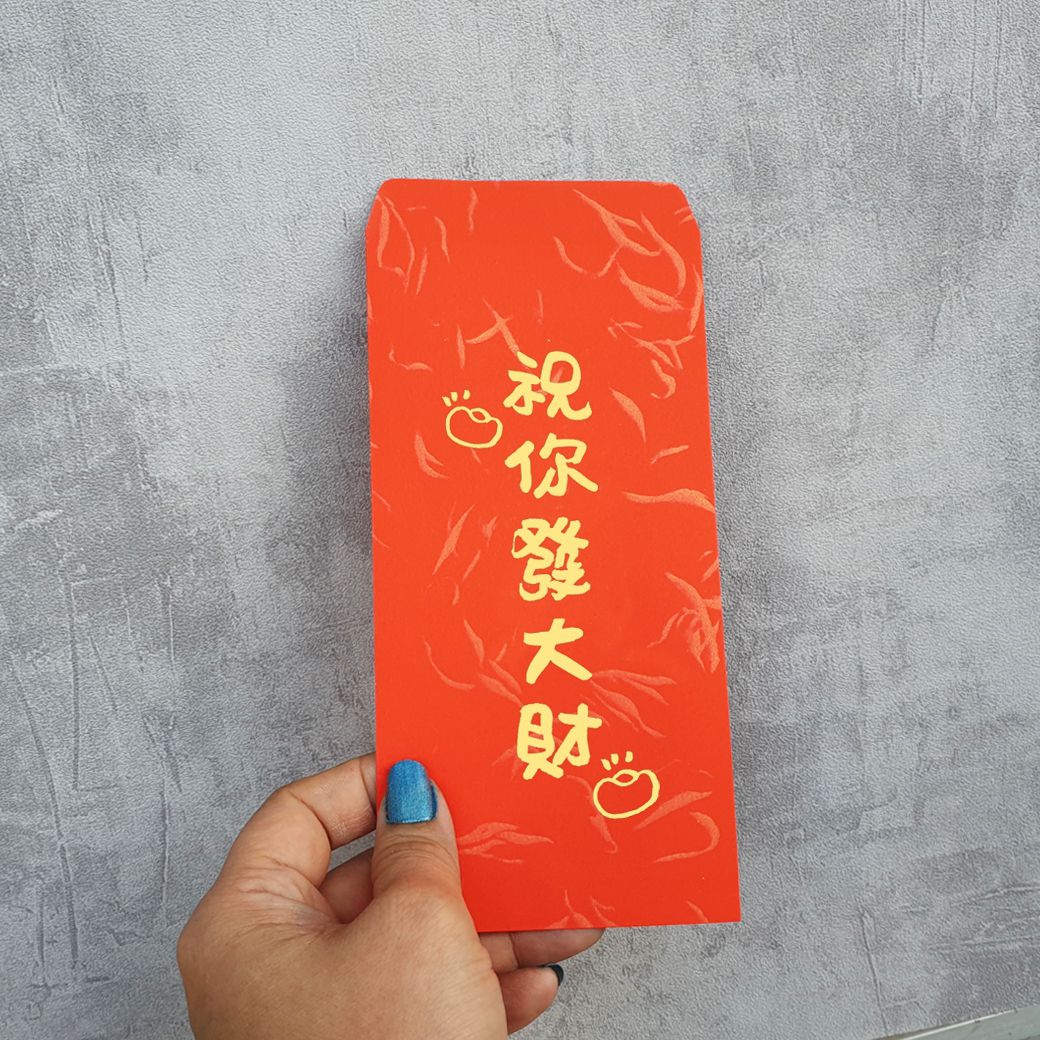 祝你發大財